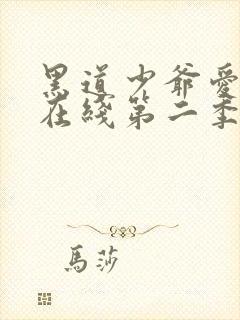 黑道少爺愛
在綫第二季
馬莎